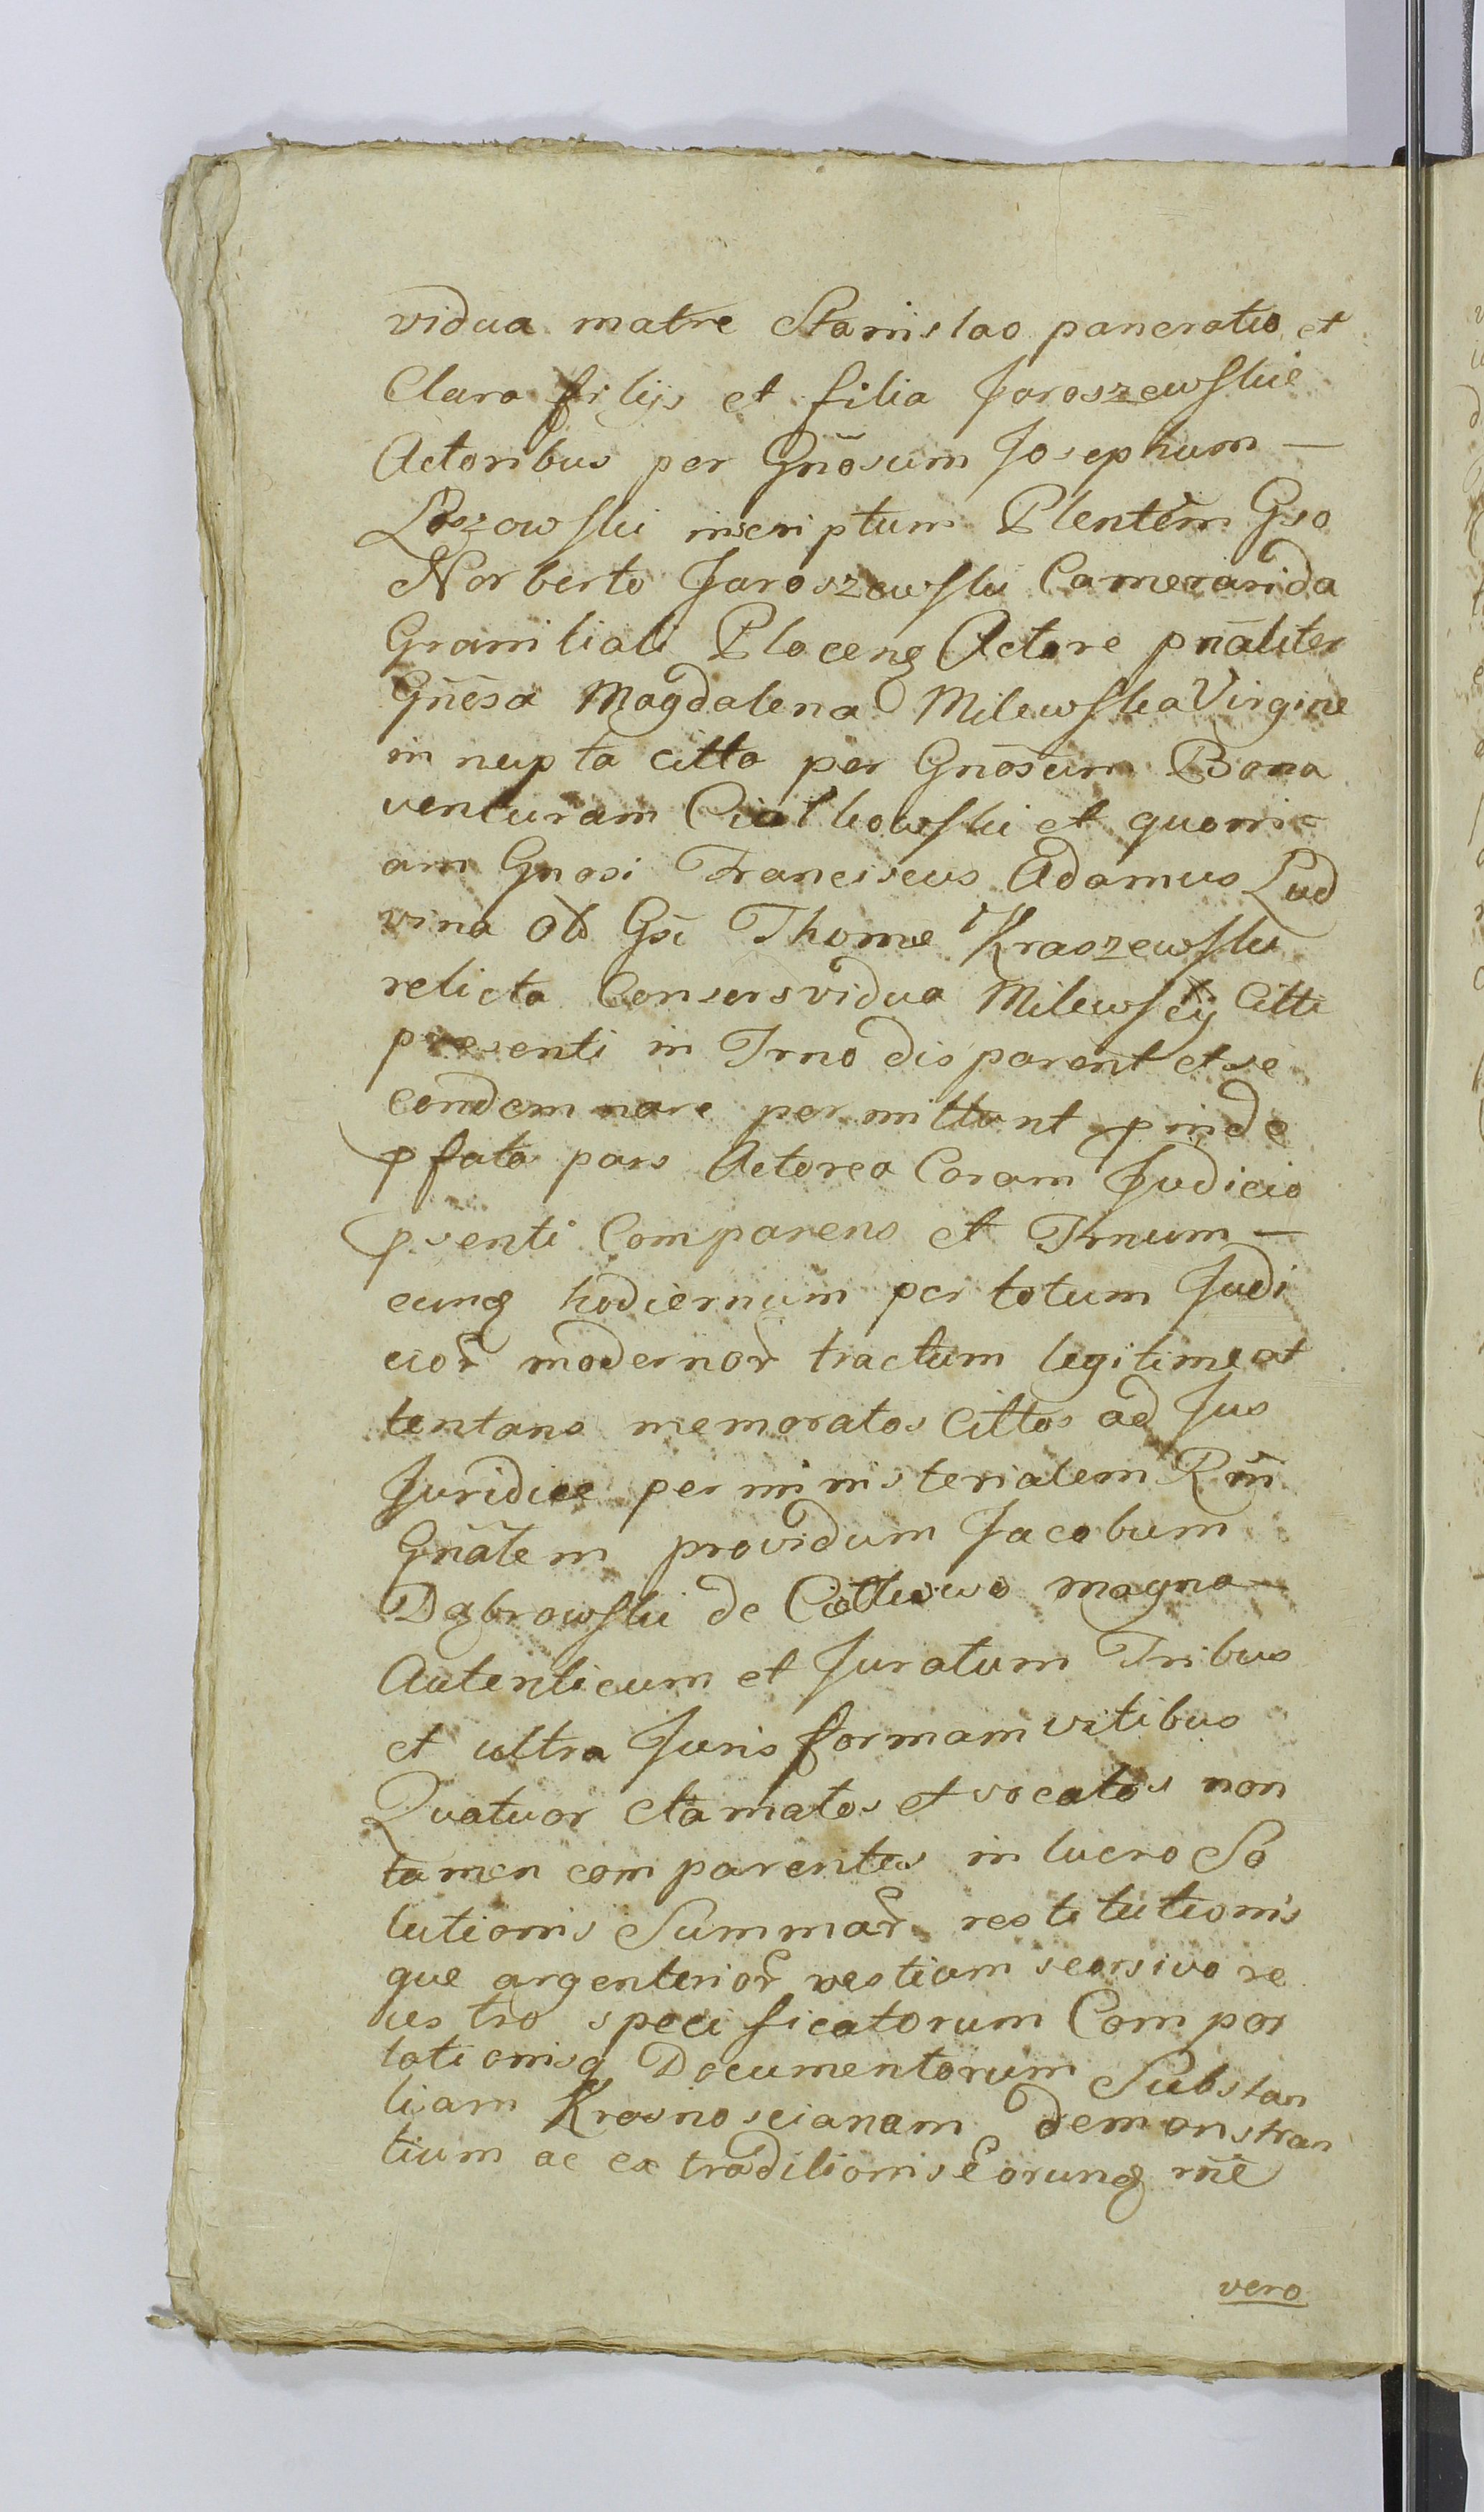 vidua matre Stanislao pancratio et
Clara filijs et filia Jaroszewskie
Actoribus per Gnõsum Josephum —
Loszowski inscriptum Plentem Gso
Norberto Jaroszewski Camerarida
Granitiali Ploceng Actore pnãliter
Gnẽsa Magdalena Milewska Virgine
in nupta citta per Gnõsum Bona
venturam Ciułkowski et quoni-
am Gnosi Franciscus Adamus Lud
vina Ol Gsi Thomæ Kraszewski
relicta Consors vidua Milewscÿ Citti
præsenti in Trno disparent et se
condemnare permittunt pinde
pfata pars Actorea Coram Judicio
psenti Comparens et Trnum —
eumq hodiernum per totum Judi
cior modernor tractum legitime at
tentans memoratos Cittos ad Jus
Juridice per ministerialem Rñi
Gnãtem providum Jacobum
Dąbrowski de magna
Autenticum et Juratum Tribus
et ultra Juris formam vitibus
Quatuor clamatos et vocatos non
tamen comparentes in lucro So
lutionis Summar restitutionis
que argenterior vestium seorsivo re
ues tro speci ficatorum Compor
tationisq Documentorum Substan
tiam Krasnoscianam demonstran
tium ac extraditionis Eorumq rñe
vero